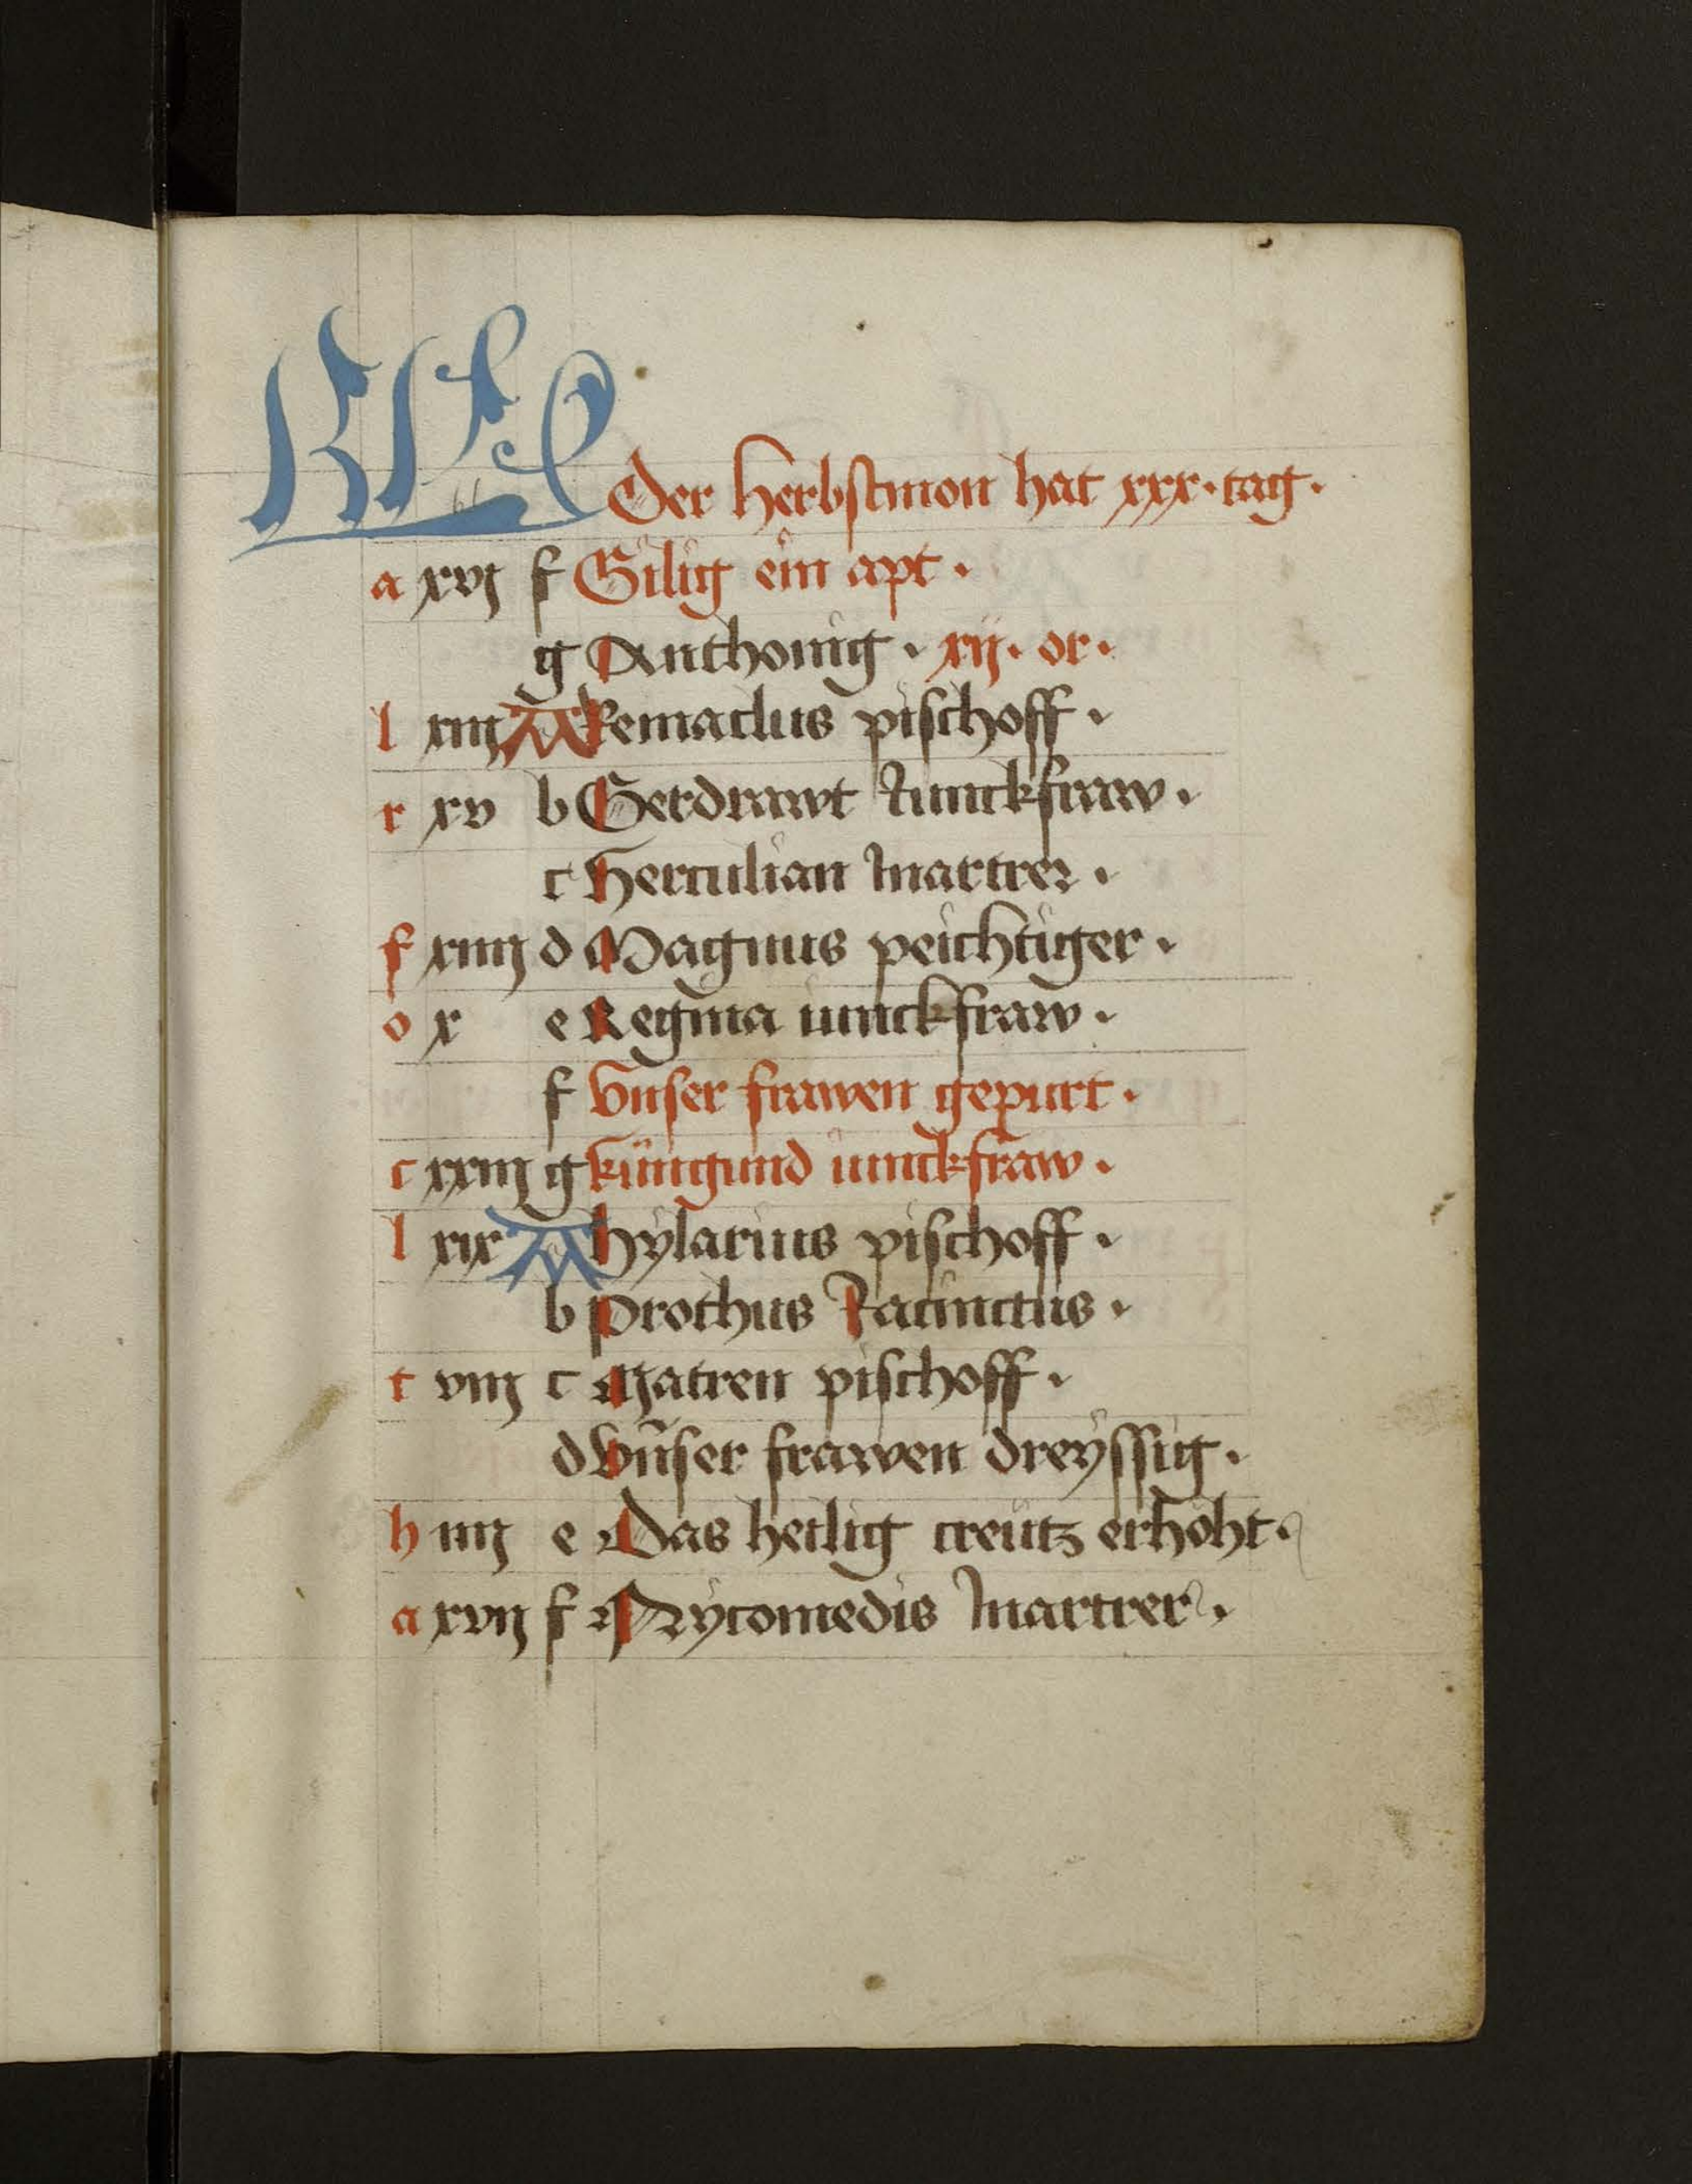 KL Der Herbstmon hat xxx · tag ·
a xvj f Gilig ein apt ·
g Anthonig · xij · or ·
l xiij A Remaclus pischoff ·
r xv b Gerdrawt Junckfraw ·
c Herculian Martrer ·
f xiiij d Magnus peichtiger ·
o x e Regina iunckfraw ·
f Vnser frawen gepurt ·
c xxiij g künigund iunckfraw ·
l xix A hylarius pischoff ·
b prothus Jacinctus ·
t viij c Matren pischoff ·
d Vnser frawen dreyssig ·
h iiij e Das heilig creutz erhoht ·
a xvij f Nycomedis Martrer ·